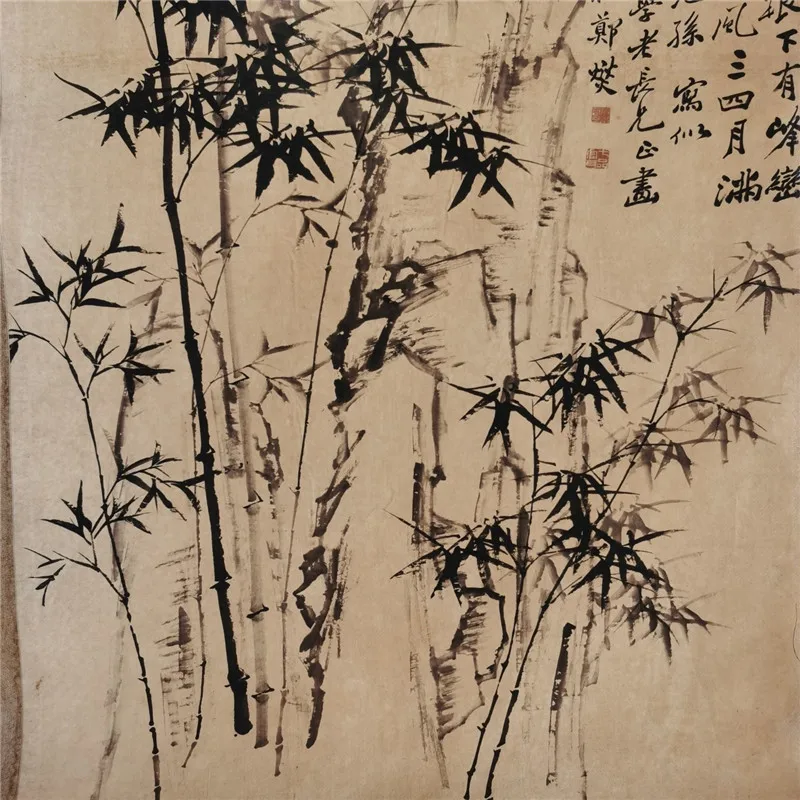 下有峰巒
風三四月滿
孫 寫似
學老長兄正畫
鄭燮